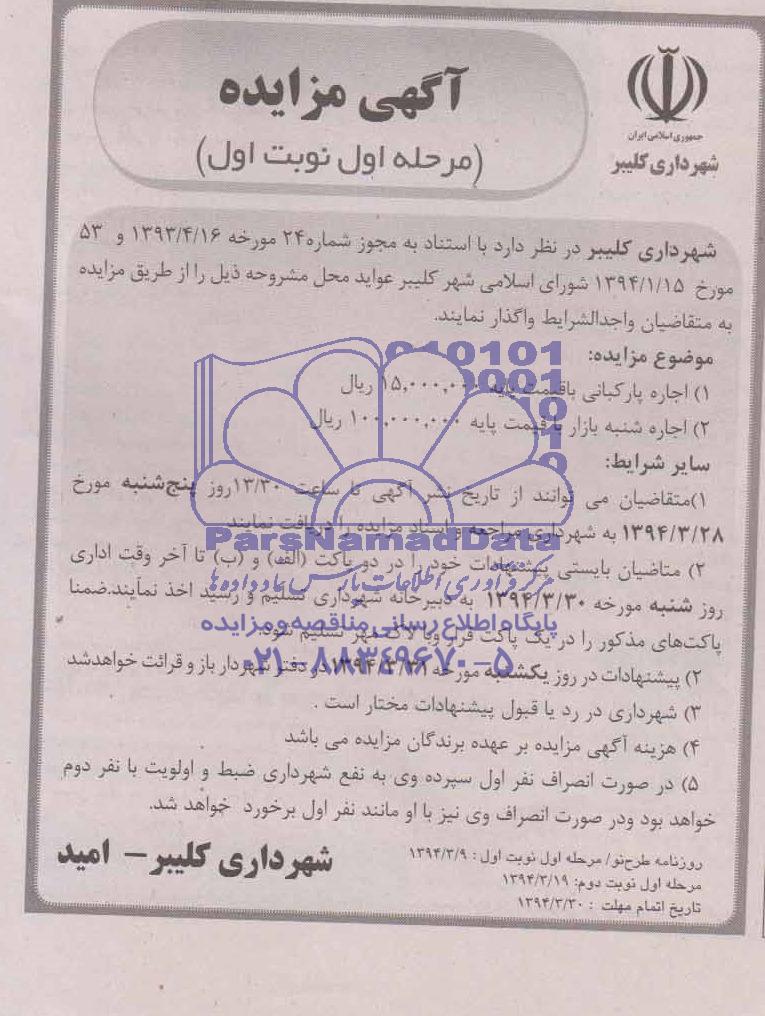 جمهوری اسلامی ایران
شهرداری کلیبر
آگهی مزایده
(مرحله اول نوبت اول)
شهرداری کلیبر در نظر دارد با استناد به مجوز شماره۲۴ مورخه ۱۳۹۳/۴/۱۶ و ۵۳
مورخ ۱۳۹۴/۱/۱۵ شورای اسلامی شهر کلیبر عواید محل مشروحه ذیل را از طریق مزایده
به متقاضیان واجدالشرایط واگذار نمایند.
موضوع مزایده:
۱) اجاره پارکبانی باقیمت پایه ۱۵,۰۰۰,۰۰۰ ریال
۲) اجاره شنبه بازار با قیمت پایه ۱۰۰,۰۰۰,۰۰۰ ریال
سایر شرایط:
۱)متقاضیان می توانند از تاریخ نشر آگهی تا ساعت ۱۳/۳۰روز پنج‌شنبه مورخ
۱۳۹۴/۳/۲۸ به شهرداری مراجعه و اسناد مزایده را دریافت نمایند
ParsNamadData
۲) متاضیان بایستی پیشنهادات خود را در دو پاکت (الف) و (ب) تا آخر وقت اداری
مرکز فرآوری اطلاعات پارس نماد داده ها
روز شنبه مورخه ۱۳۹۴/۳/۳۰ به دبیرخانه شهرداری تسلیم و رسید اخذ نمایند.ضمنا
پایگاه اطلاع رسانی مناقصه و مزایده
پاکت‌های مذکور را در یک پاکت قرار و با لاک مهر تسلیم شود.
۰۲۱-۸۸۳۴۹۶۷۰-۵
۲) پیشنهادات در روز یکشنبه مورخه ۱۳۹۴/۳/۳۱ در دفتر شهردار باز و قرائت خواهدشد
۳) شهرداری در رد یا قبول پیشنهادات مختار است .
۴) هزینه آگهی مزایده بر عهده برندگان مزایده می باشد
۵) در صورت انصراف نفر اول سپرده وی به نفع شهرداری ضبط و اولویت با نفر دوم
خواهد بود ودر صورت انصراف وی نیز با او مانند نفر اول برخورد خواهد شد.
روزنامه طرح‌نو/ مرحله اول نوبت اول : ۱۳۹۴/۳/۹
مرحله اول نوبت دوم: ۱۳۹۴/۳/۱۹
تاریخ اتمام مهلت : ۱۳۹۴/۳/۳۰
شهرداری کلیبر – امید